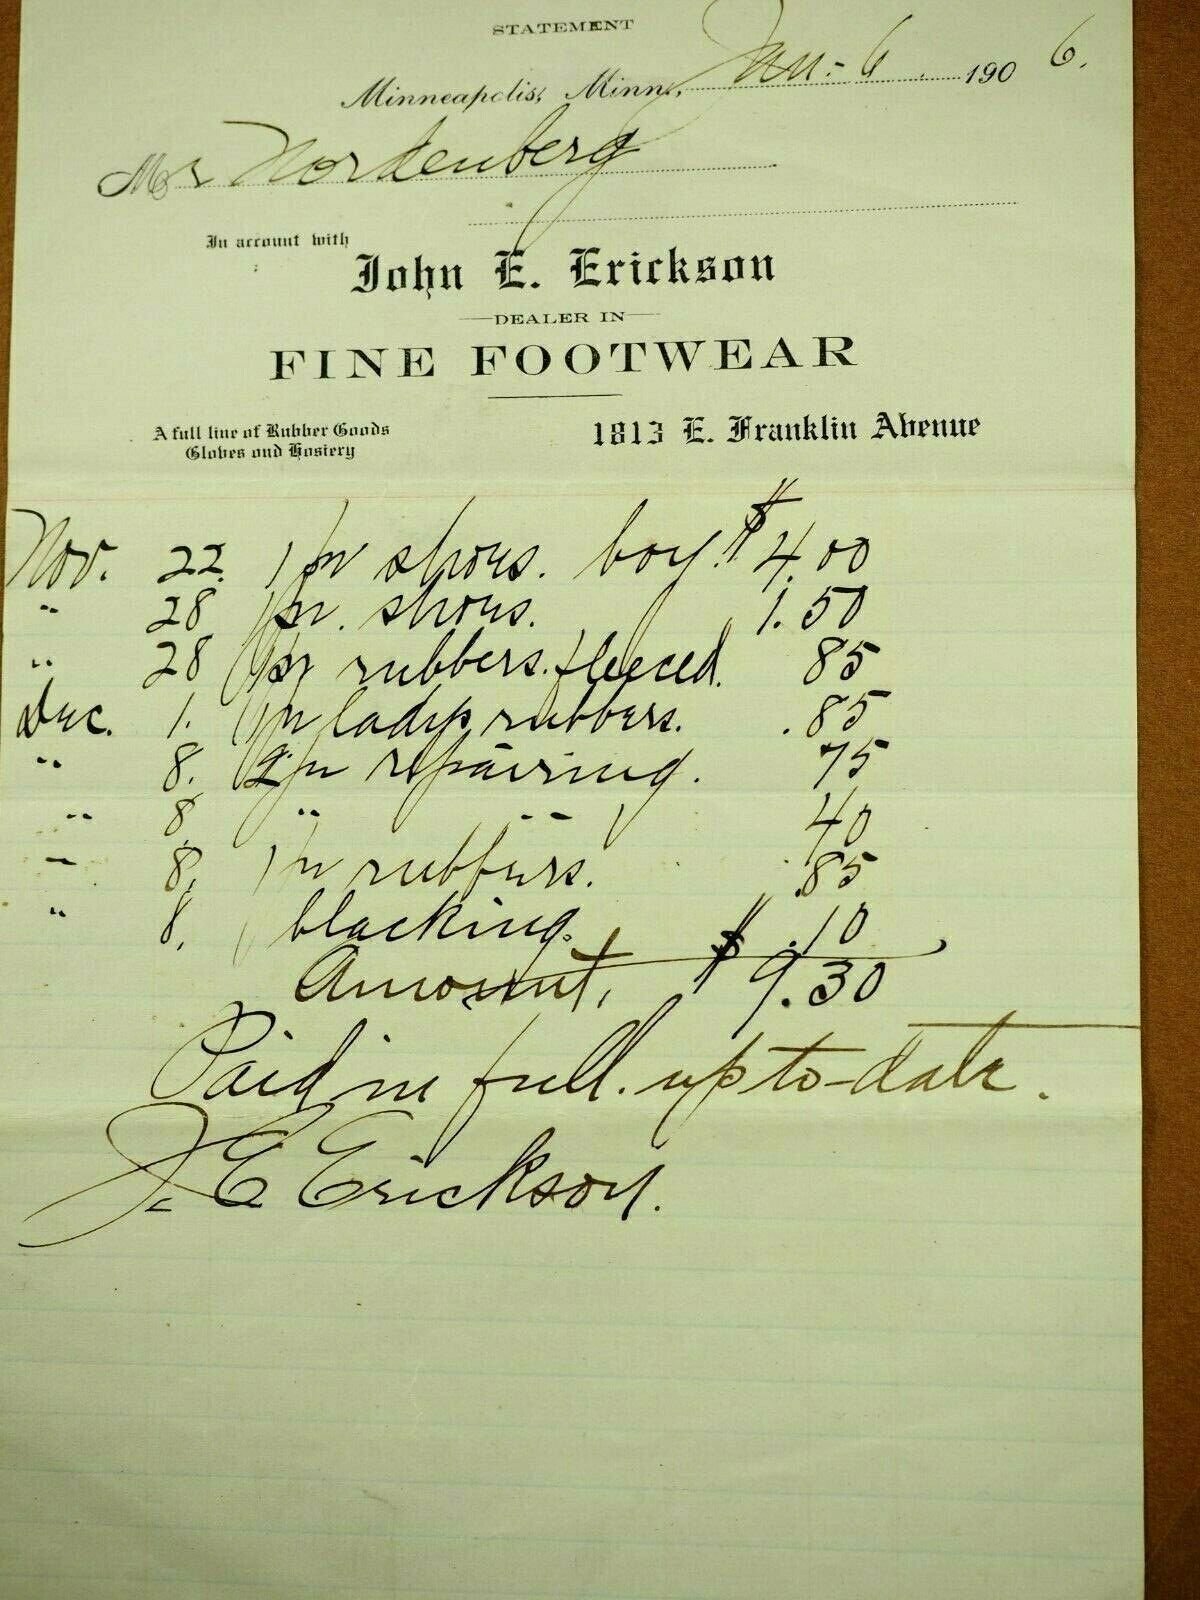 STATEMENT
Minneapolis, Minn., Jan. 6. 1906.
Mr Nordenberg
In account with
John E. Erickson
DEALER IN
FINE FOOTWEAR
A full line of Rubber Goods
Gloves ond Hosiery
1813 E. Franklin Avenue
Nov. 22. 1 pr shoes. boy. $4.00
" 28 1 pr. shoes. 1.50
" 28 1 pr rubbers. fleeced. 85
Dec. 1. 1 pr ladys rubbers. .85
" 8. 2 pr repairing. 75
" 8, " " 40
" 8, 1 pr rubbers. .85
" 8, 1 blacking. $.10
Amount, $9.30
Paid in full. up to-date.
J. E Erickson.